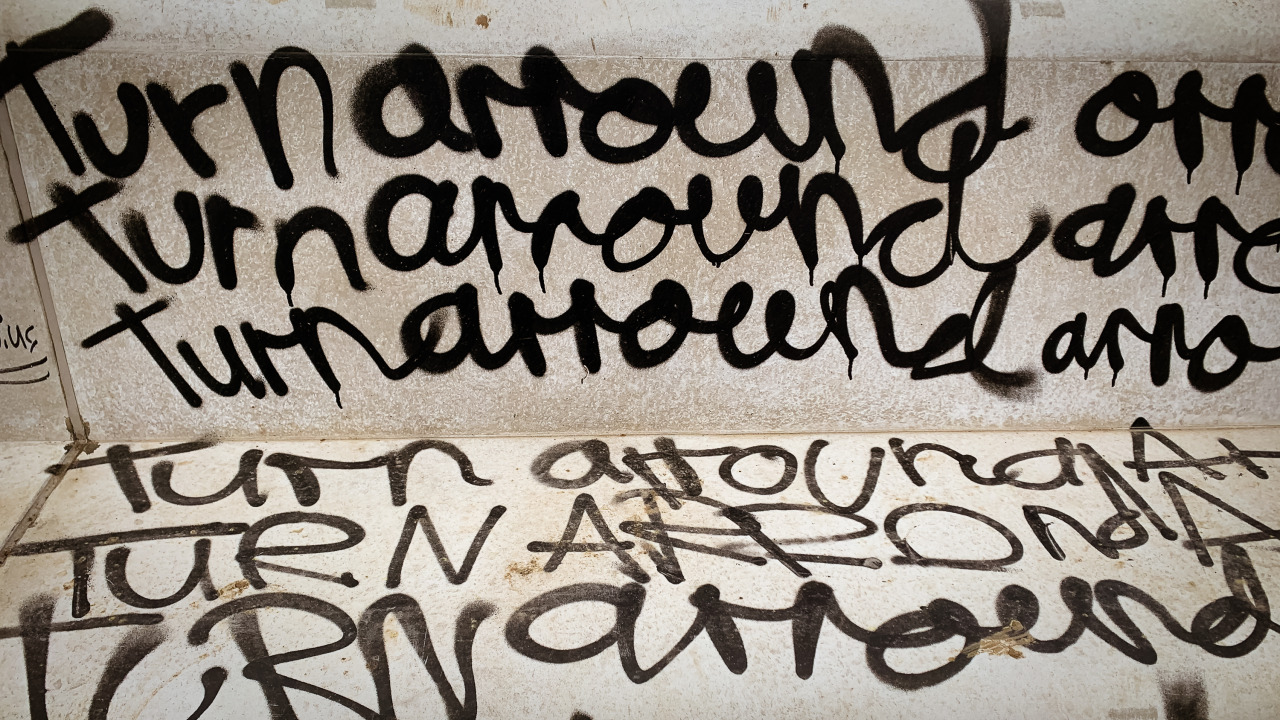 Turn arround orr
Turn arround arro
Turn arround arro
ius
Turn arround
TuRN ARRONd A
TURN arround